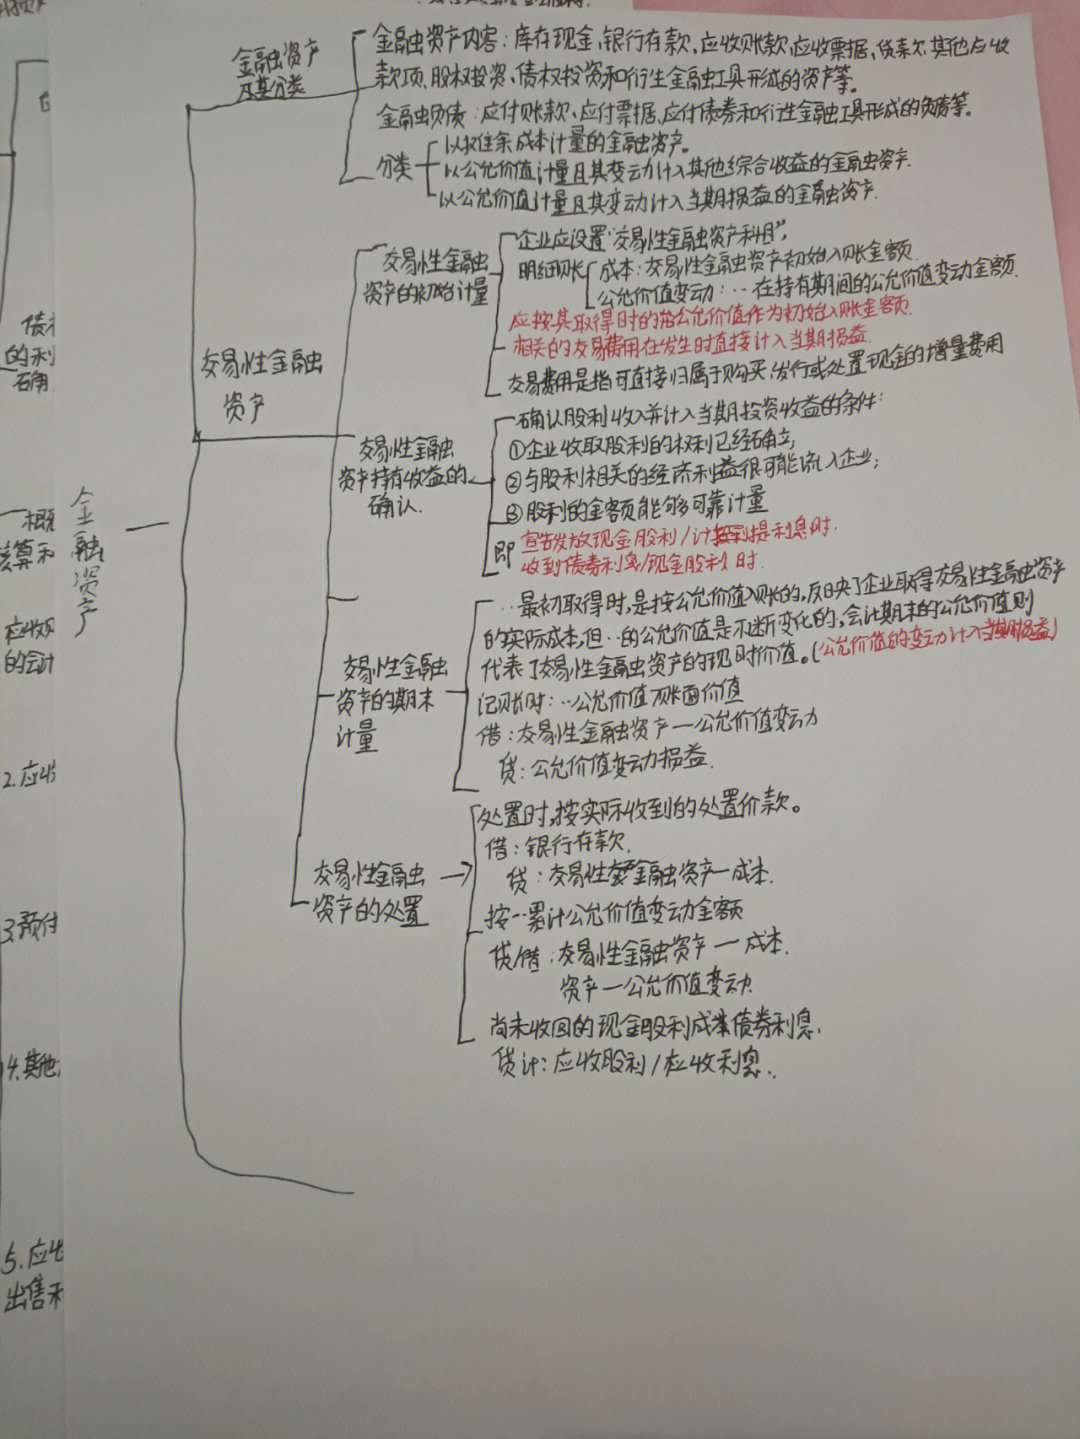 金融资产
金融资产
及其分类
金融资产内容：库存现金、银行存款、应收账款、应收票据、贷款、其他应收
款项、股权投资、债权投资和衍生金融工具形成的资产等。
金融负债：应付账款、应付票据、应付债券和衍生金融工具形成的负债等。
分类
以摊余成本计量的金融资产。
以公允价值计量且其变动计入其他综合收益的金融资产.
以公允价值计量且其变动计入当期损益的金融资产.
交易性金融
资产
交易性金融
资产的初始计量
企业应设置“交易性金融资产科目”;
明细账
成本：交易性金融资产初始入账金额.
公允价值变动：…在持有期间的公允价值变动金额.
应按其取得时的公允价值作为初始入账金额.
相关的交易费用在发生时直接计入当期损益.
交易费用是指可直接归属于购买、发行或处置现金的增量费用
交易性金融
资产持有收益的
确认.
确认股利收入并计入当期投资收益的条件：
①企业收取股利的权利已经确立;
②与股利相关的经济利益很可能流入企业;
③股利的金额能够可靠计量
即
宣告发放现金股利/计提利息时.
收到债券利息/现金股利时.
交易性金融
资产的期末
计量
…最初取得时,是按公允价值入账的,反映了企业取得交易性金融资产
的实际成本,但…的公允价值是不断变化的,会计期末的公允价值则
代表了交易性金融资产的现时价值。(公允价值的变动计入当期损益)
记账时：…公允价值 账面价值
借：交易性金融资产—公允价值变动
贷：公允价值变动损益.
交易性金融
资产的处置
处置时,按实际收到的处置价款。
借：银行存款.
贷：交易性金融资产—成本.
按…累计公允价值变动金额
贷/借：交易性金融资产—成本.
资产—公允价值变动.
尚未收回的现金股利或债券利息.
贷计：应收股利/应收利息.
的利
的会计
2.应收
3.预付
4.其他
5.应收
出售和